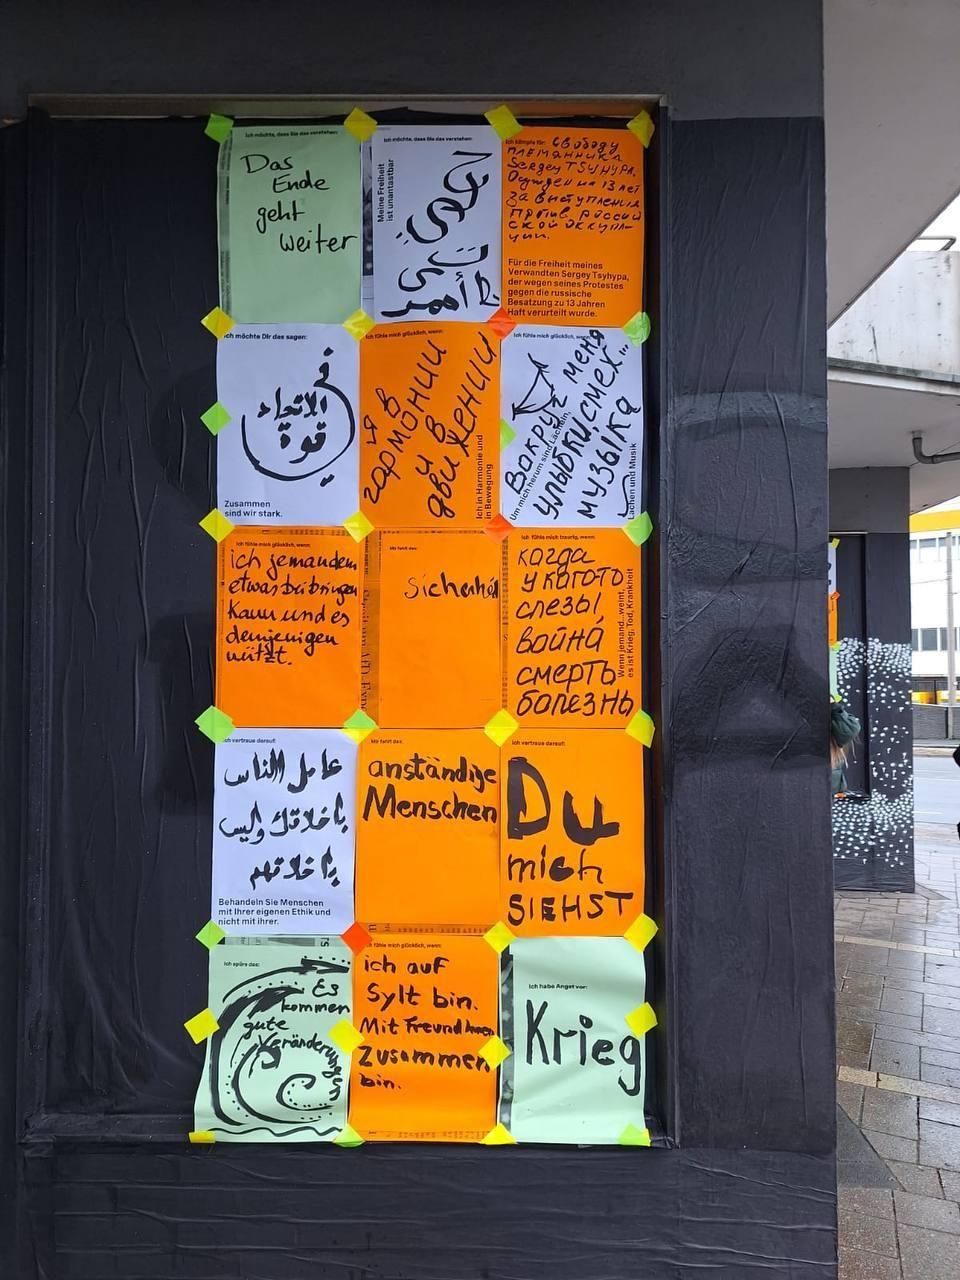 Ich möchte, dass Sie das verstehen:
Das
Ende
geht
weiter
Ich möchte, dass Sie das verstehen:
Meine Freiheit
ist unantastbar
Ich kämpfe für:
свободу
племянника
Sergey TSYHYPA.
Осужден на 13 лет
за выступления
против россий
ской оккупа-
ции.
Für die Freiheit meines
Verwandten Sergey Tsyhypa,
der wegen seines Protestes
gegen die russische
Besatzung zu 13 Jahren
Haft verurteilt wurde.
Ich möchte Dir das sagen:
في
الاتحاد
قوة
Zusammen
sind wir stark.
Ich fühle mich glücklich, wenn:
я в
гармонии
и в
движении
Ich in Harmonie und
in Bewegung
Ich fühle mich glücklich, wenn:
Вокруг меня
улыбки, смех...
музыка
Um mich herum sind Lächeln,
Lachen und Musik
Ich fühle mich glücklich, wenn:
ich jemandem
etwas beibringen
kann und es
demjenigen
nützt.
Mir fehlt das:
Sicherheit
Ich fühle mich traurig, wenn:
когда
у кого-то
слезы,
война
смерть
болезнь
Wenn jemand...weint,
es ist Krieg, Tod, Krankheit
Ich vertraue darauf:
عامل الناس
بأخلاقك وليس
بأخلاقهم
Behandeln Sie Menschen
mit Ihrer eigenen Ethik und
nicht mit ihrer.
Mir fehlt das:
anständige
Menschen
Ich vertraue darauf:
Du
mich
SIEHST
Ich spüre das:
Es
kommen
gute
Veränderungen
Ich fühle mich glücklich, wenn:
ich auf
Sylt bin.
Mit Freund innen
zusammen
bin.
Ich habe Angst vor:
Krieg